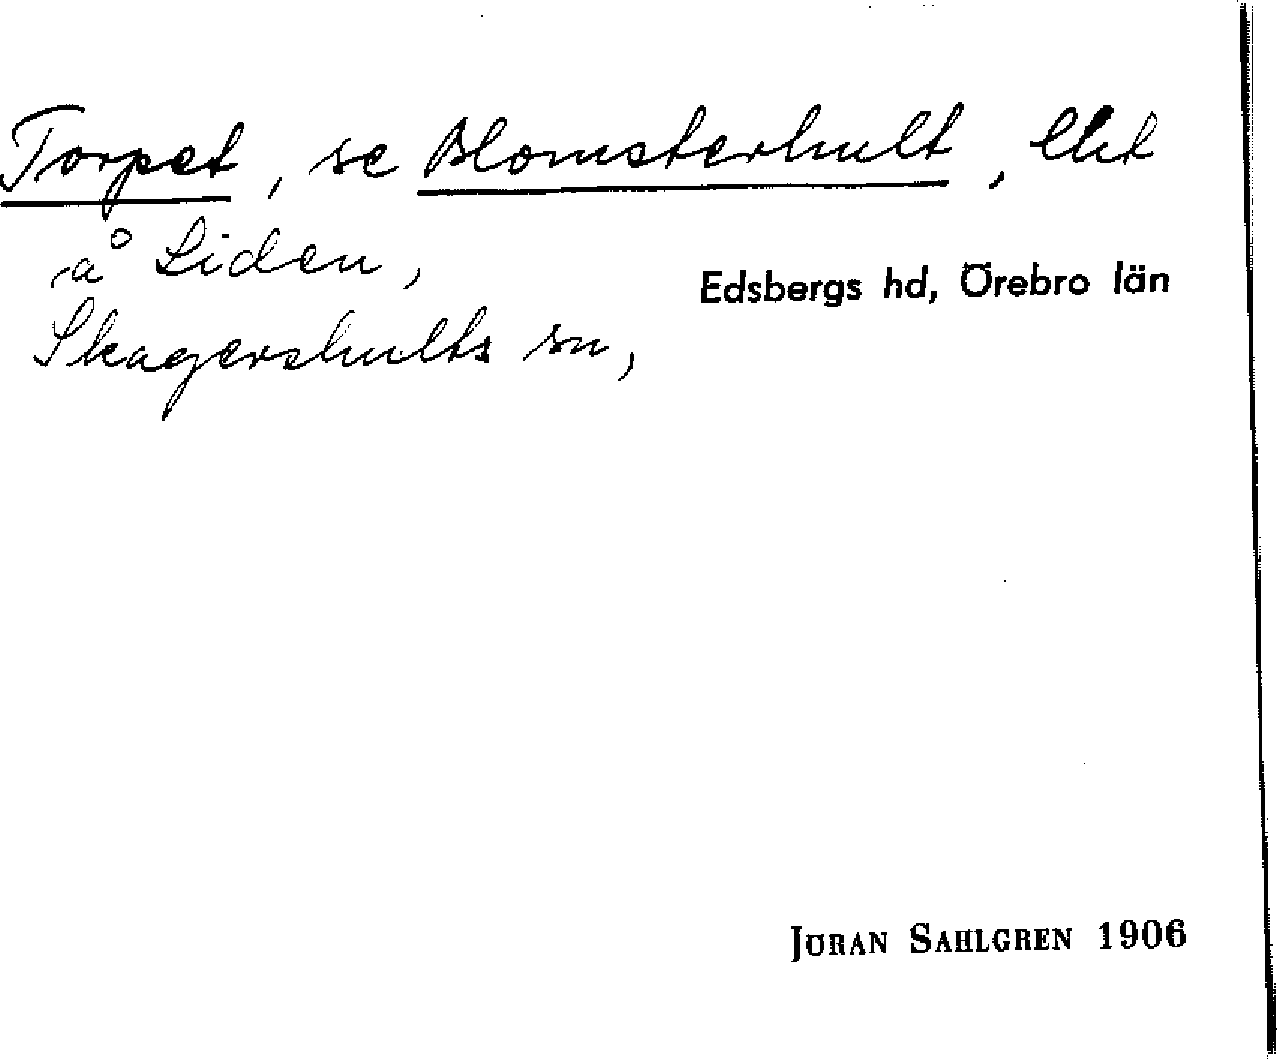 Torpet, se Blomsterhult, lht
å Liden,
Edsbergs hd, Örebro län
Skagershults sn,
JÖRAN SAHLGREN 1906